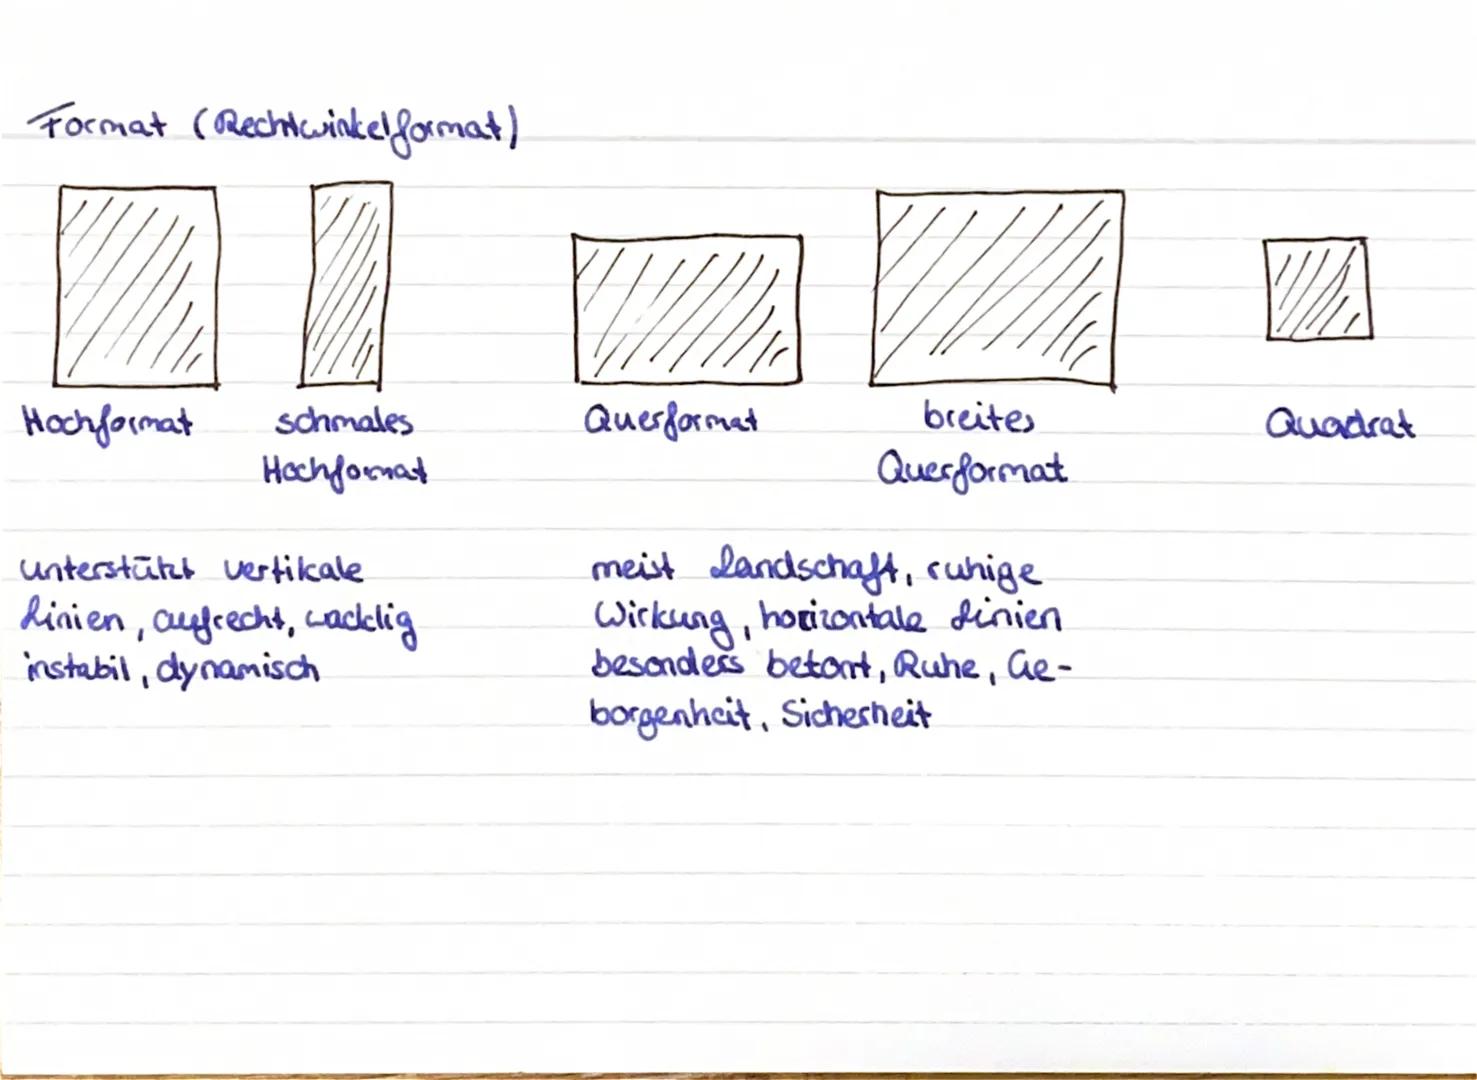 Format (Rechtwinkelformat)
Hochformat
schmales
Hochformat
Querformat
breites
Querformat
Quadrat
unterstützt vertikale
Linien, aufrecht, wacklig
instabil, dynamisch
meist Landschaft, ruhige
Wirkung, horizontale Linien
besonders betont, Ruhe, Ge-
borgenheit, Sicherheit